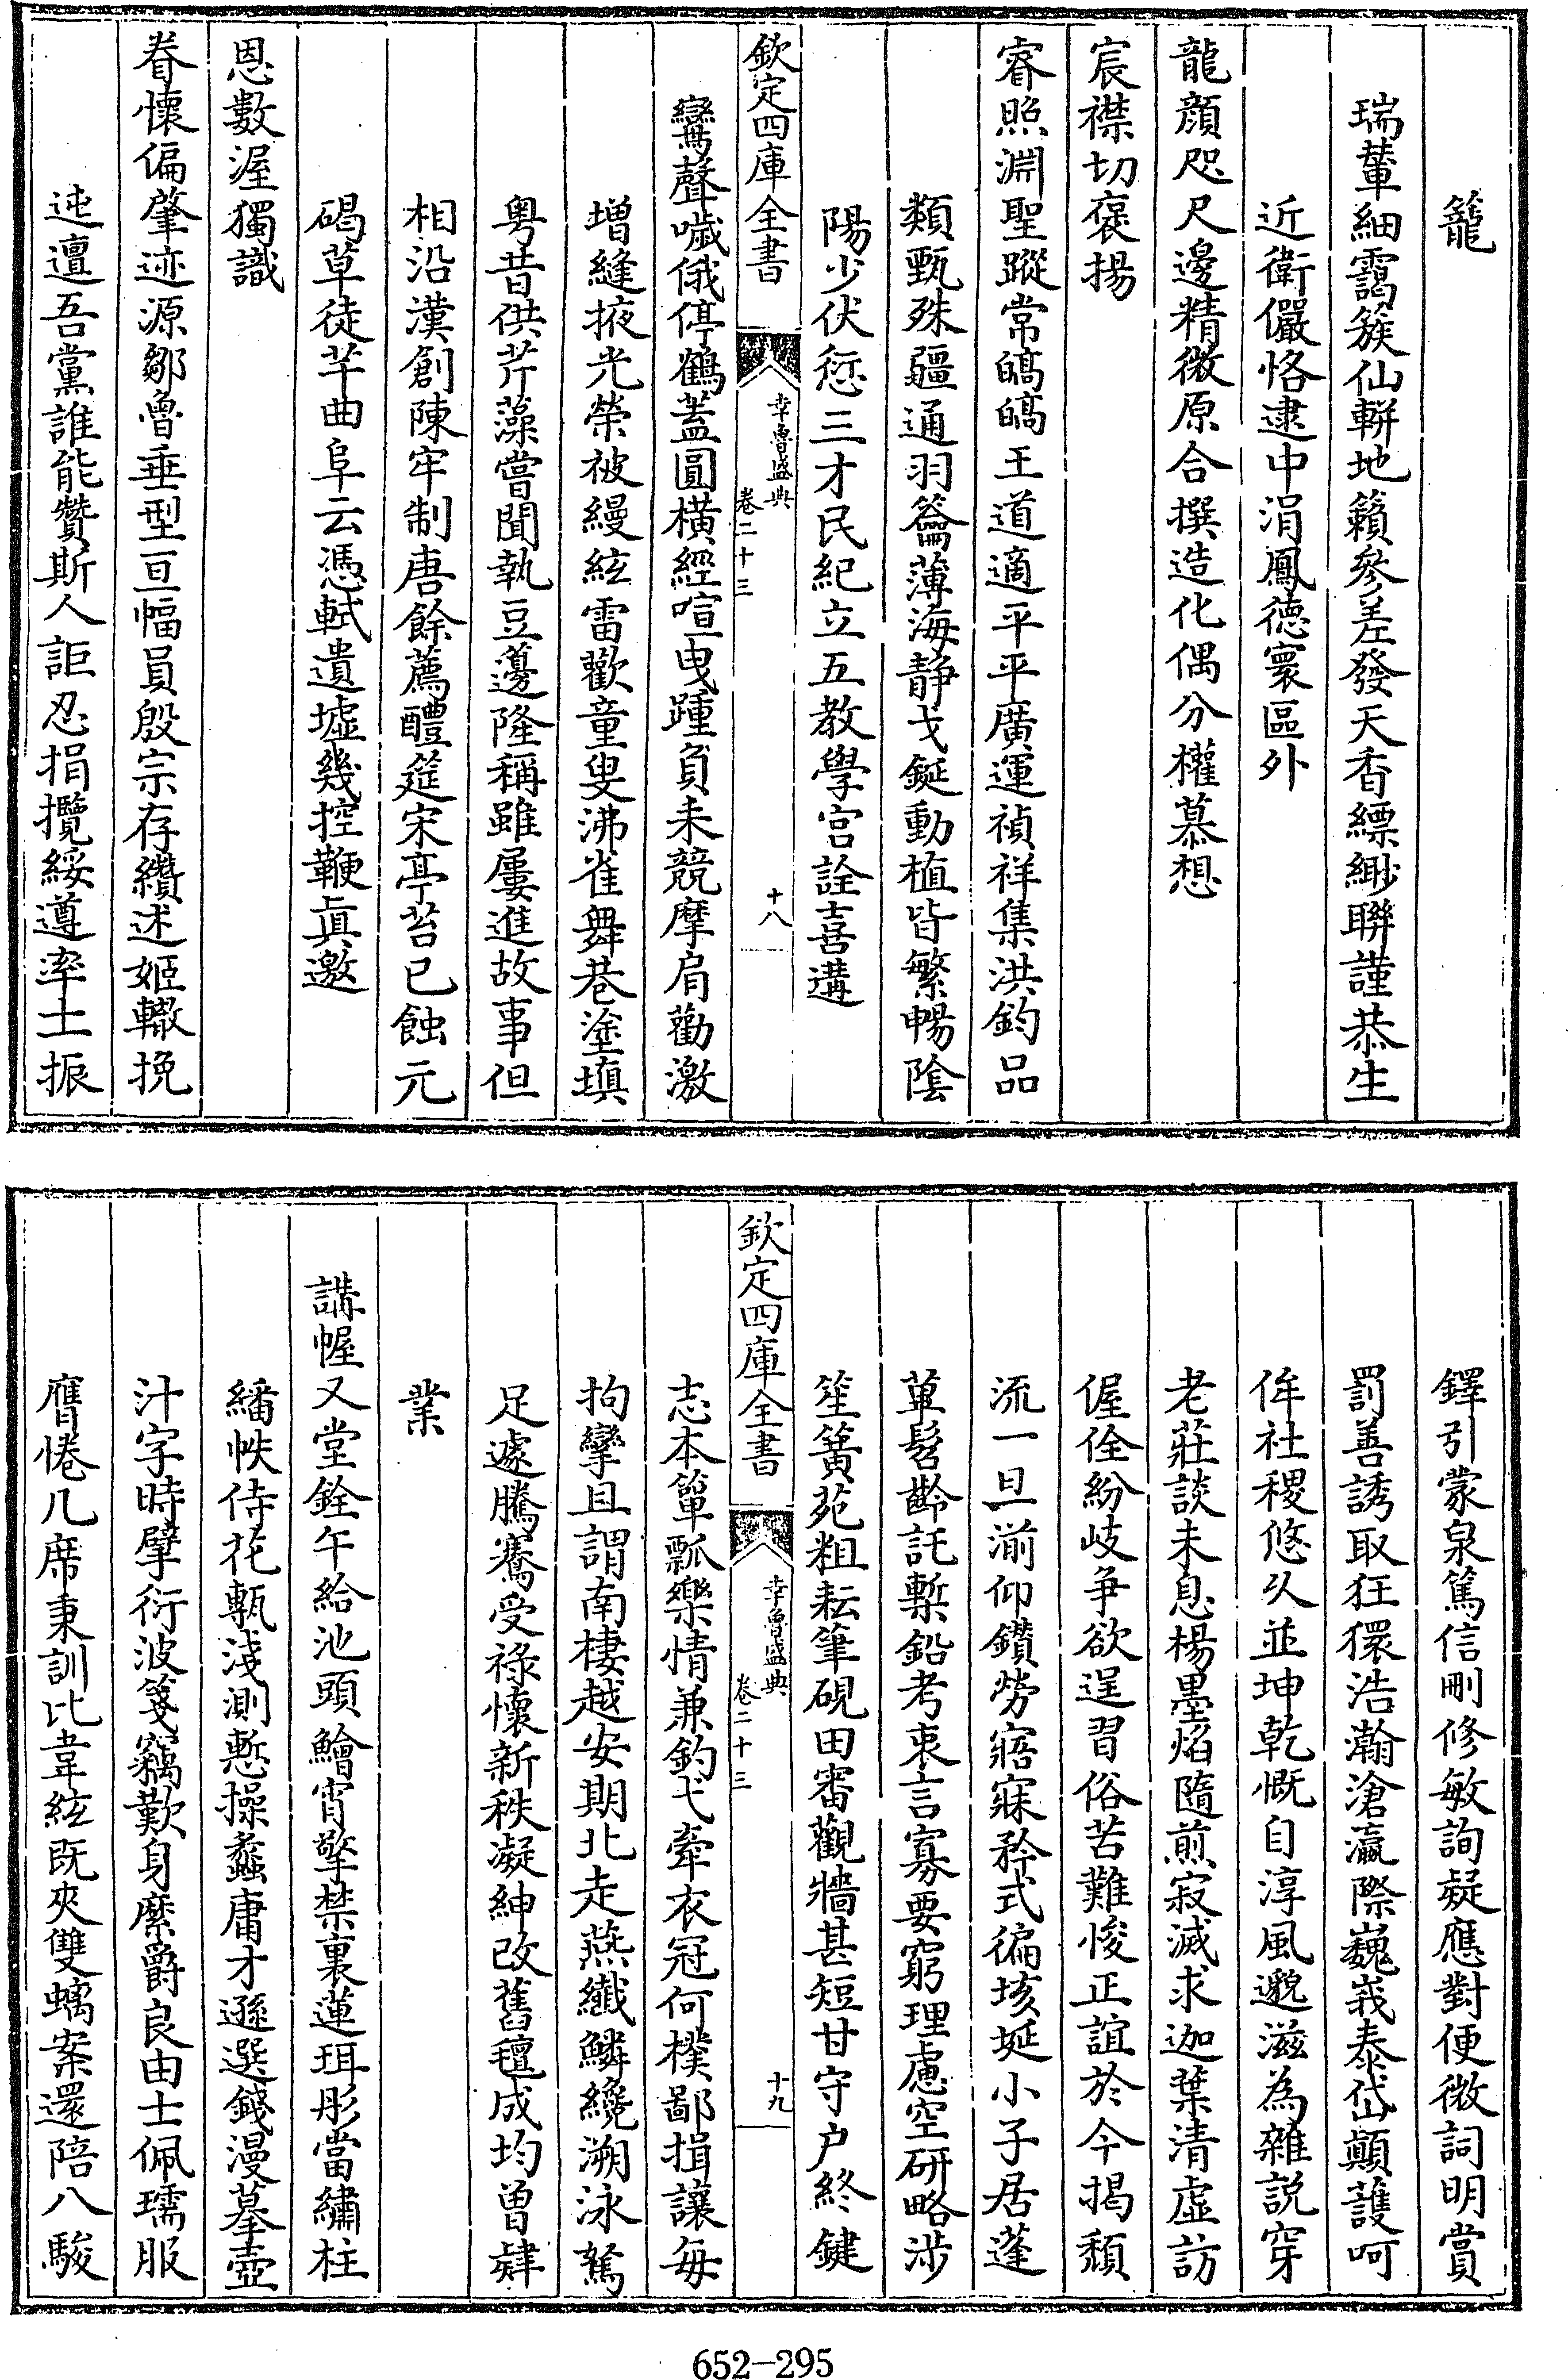 籠
瑞葦細靄簇仙軿地籟參差發天香縹緲聯謹恭生
近衛儼恪逮中涓鳳徳寰區外
龍顔咫尺邊精微原合撰造化偶分權慕想
宸襟切褒揚
睿照淵聖蹤常皜皜王道適平平廣運禎祥集洪鈞品
類甄殊疆通羽籥薄海静戈鋋動植皆繁暢陰
陽少伏愆三才民紀立五教學宫詮喜遘
欽定四庫全書
幸魯盛典
卷二十三
十八
鸞聲噦俄停鶴蓋圓横經喧曳踵負耒競摩肩勸激
増縫掖光榮被縵絃雷歡童叟沸雀舞巷塗填
粤昔供芹藻嘗聞執豆籩隆稱雖屢進故事但
相沿漢創陳牢制唐餘薦醴筵宋亭苔已蝕元
碣草徒芊曲阜云憑軾遺墟幾控鞭眞邀
恩數渥獨識
眷懷偏肇迹源鄒魯垂型亘幅員殷宗存纘述姬轍挽
迍邅吾黨誰能贊斯人詎忍捐攬綏遵率土振
鐸引蒙泉篤信刪修敏詢疑應對便微詞明賞
罰善誘取狂獧浩瀚滄瀛際巍峩泰岱巔護呵
侔社稷悠久並坤乾慨自淳風邈滋為雜説穿
老莊談未息楊墨焰隨煎寂滅求迦葉清虚訪
偓佺紛岐爭欲逞習俗苦難悛正誼於今揭頽
流一旦湔仰鑽勞寤寐矜式徧垓埏小子居蓬
蓽髫齡託槧鉛考衷言寡要窮理慮空研略涉
笙簧苑粗耘筆硯田審觀牆甚短甘守户終鍵
欽定四庫全書
幸魯盛典
卷二十三
十九
志本簞瓢樂情兼釣弋牽衣冠何樸鄙揖讓每
拘攣且謂南棲越安期北走燕纖鱗纔溯泳駑
足遽騰鶱受祿懷新秩凝紳改舊氊成均曽肄
業
講幄又堂銓午給池頭鱠宵擎禁裏蓮珥彤當繡柱
繙帙侍花甎淺測慙操蠡庸才遜選錢漫摹壺
汁字時擘衍波箋竊歎身縻爵良由士佩瓀服
膺惓几席秉訓比韋絃既夾雙螭案還陪八駿
652-295